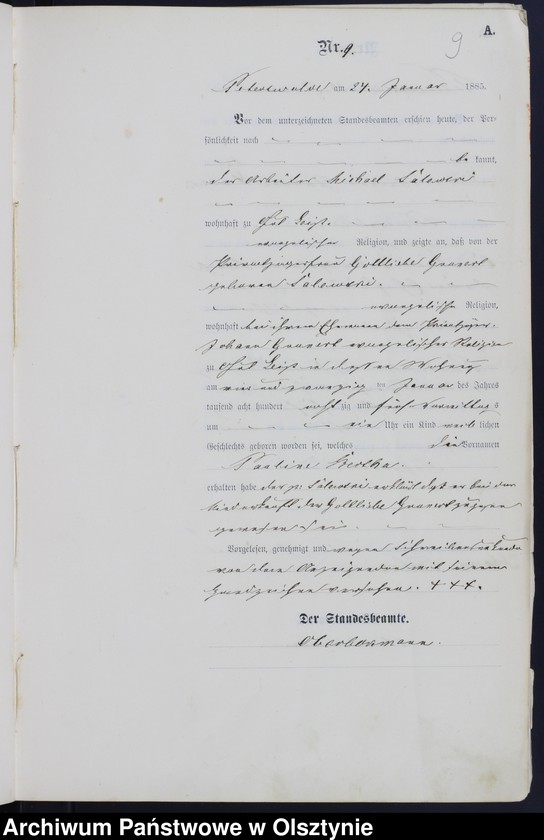 A.
Nr. 9.
9
Peterswalde am 24. Januar 1885.
Vor dem unterzeichneten Standesbeamten erschien heute, der Per-
sönlichkeit nach
be kannt,
der Arbeiter Michael
wohnhaft zu Gut
evangelischer Religion, und zeigte an, daß von der
Gottliebe
geborenen
evangelischer Religion,
wohnhaft bei ihrem Ehemann dem
Johann evangelischer Religion
zu Gut in dessen Wohnung
am vier und zwanzig ten Januar des Jahres
tausend acht hundert acht zig und fünf Vormittags
um ein Uhr ein Kind weib lichen
Geschlechts geboren worden sei, welches die Vornamen
Pauline Bertha.
erhalten habe. der p. erklärt daß er bei der
Niederkunft der Gottliebe zugegen
gewesen sei.
Vorgelesen, genehmigt und wegen Schreibensunkunde
von dem Anzeigenden mit seinem
Handzeichen versehen. + + +.
Der Standesbeamte.
Archiwum Państwowe w Olsztynie